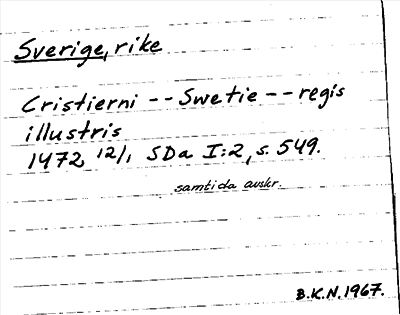 Sverige, rike
Cristierni -- Swetie -- regis
illustris
1472 12/1 SDa I:2, s. 549.
samtida avskr.
B.K.N. 1967.